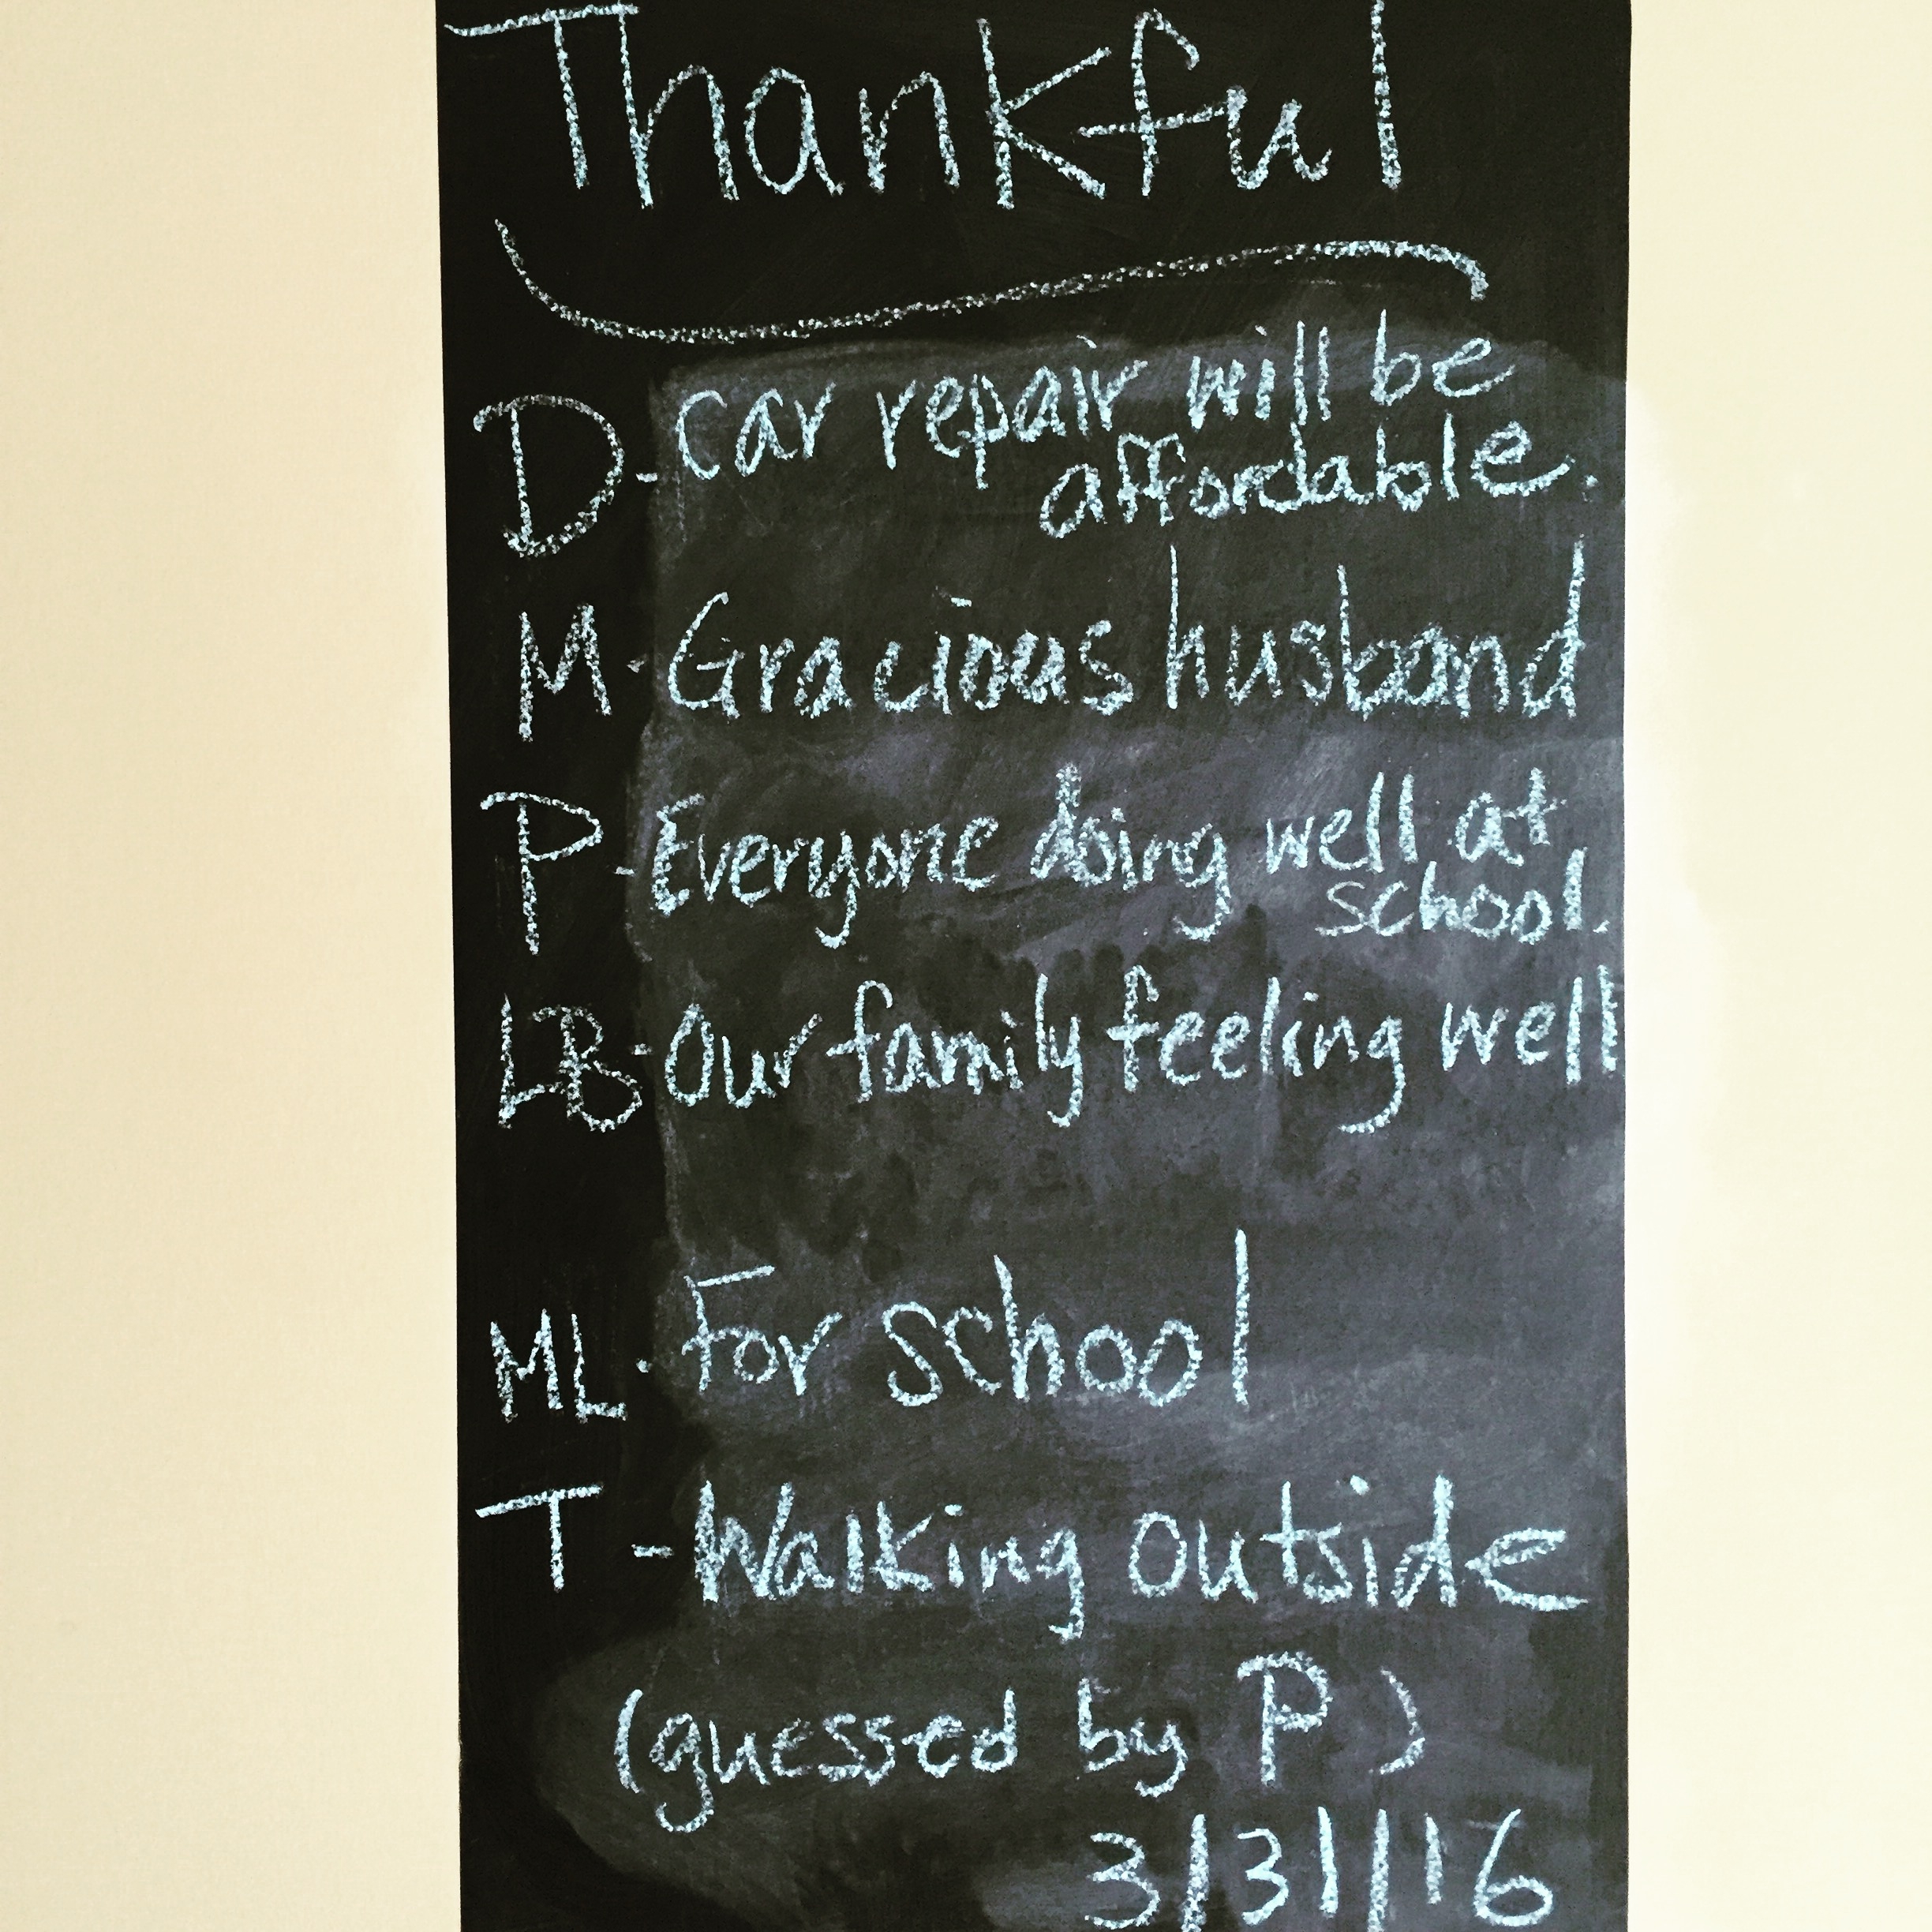 Thankful
D - Car repair will be
affordable.
M - Gracious husband
P - Everyone doing well at
school.
LB - Our family feeling well
ML - For school
T - Walking outside
(guessed by P)
3/31/16